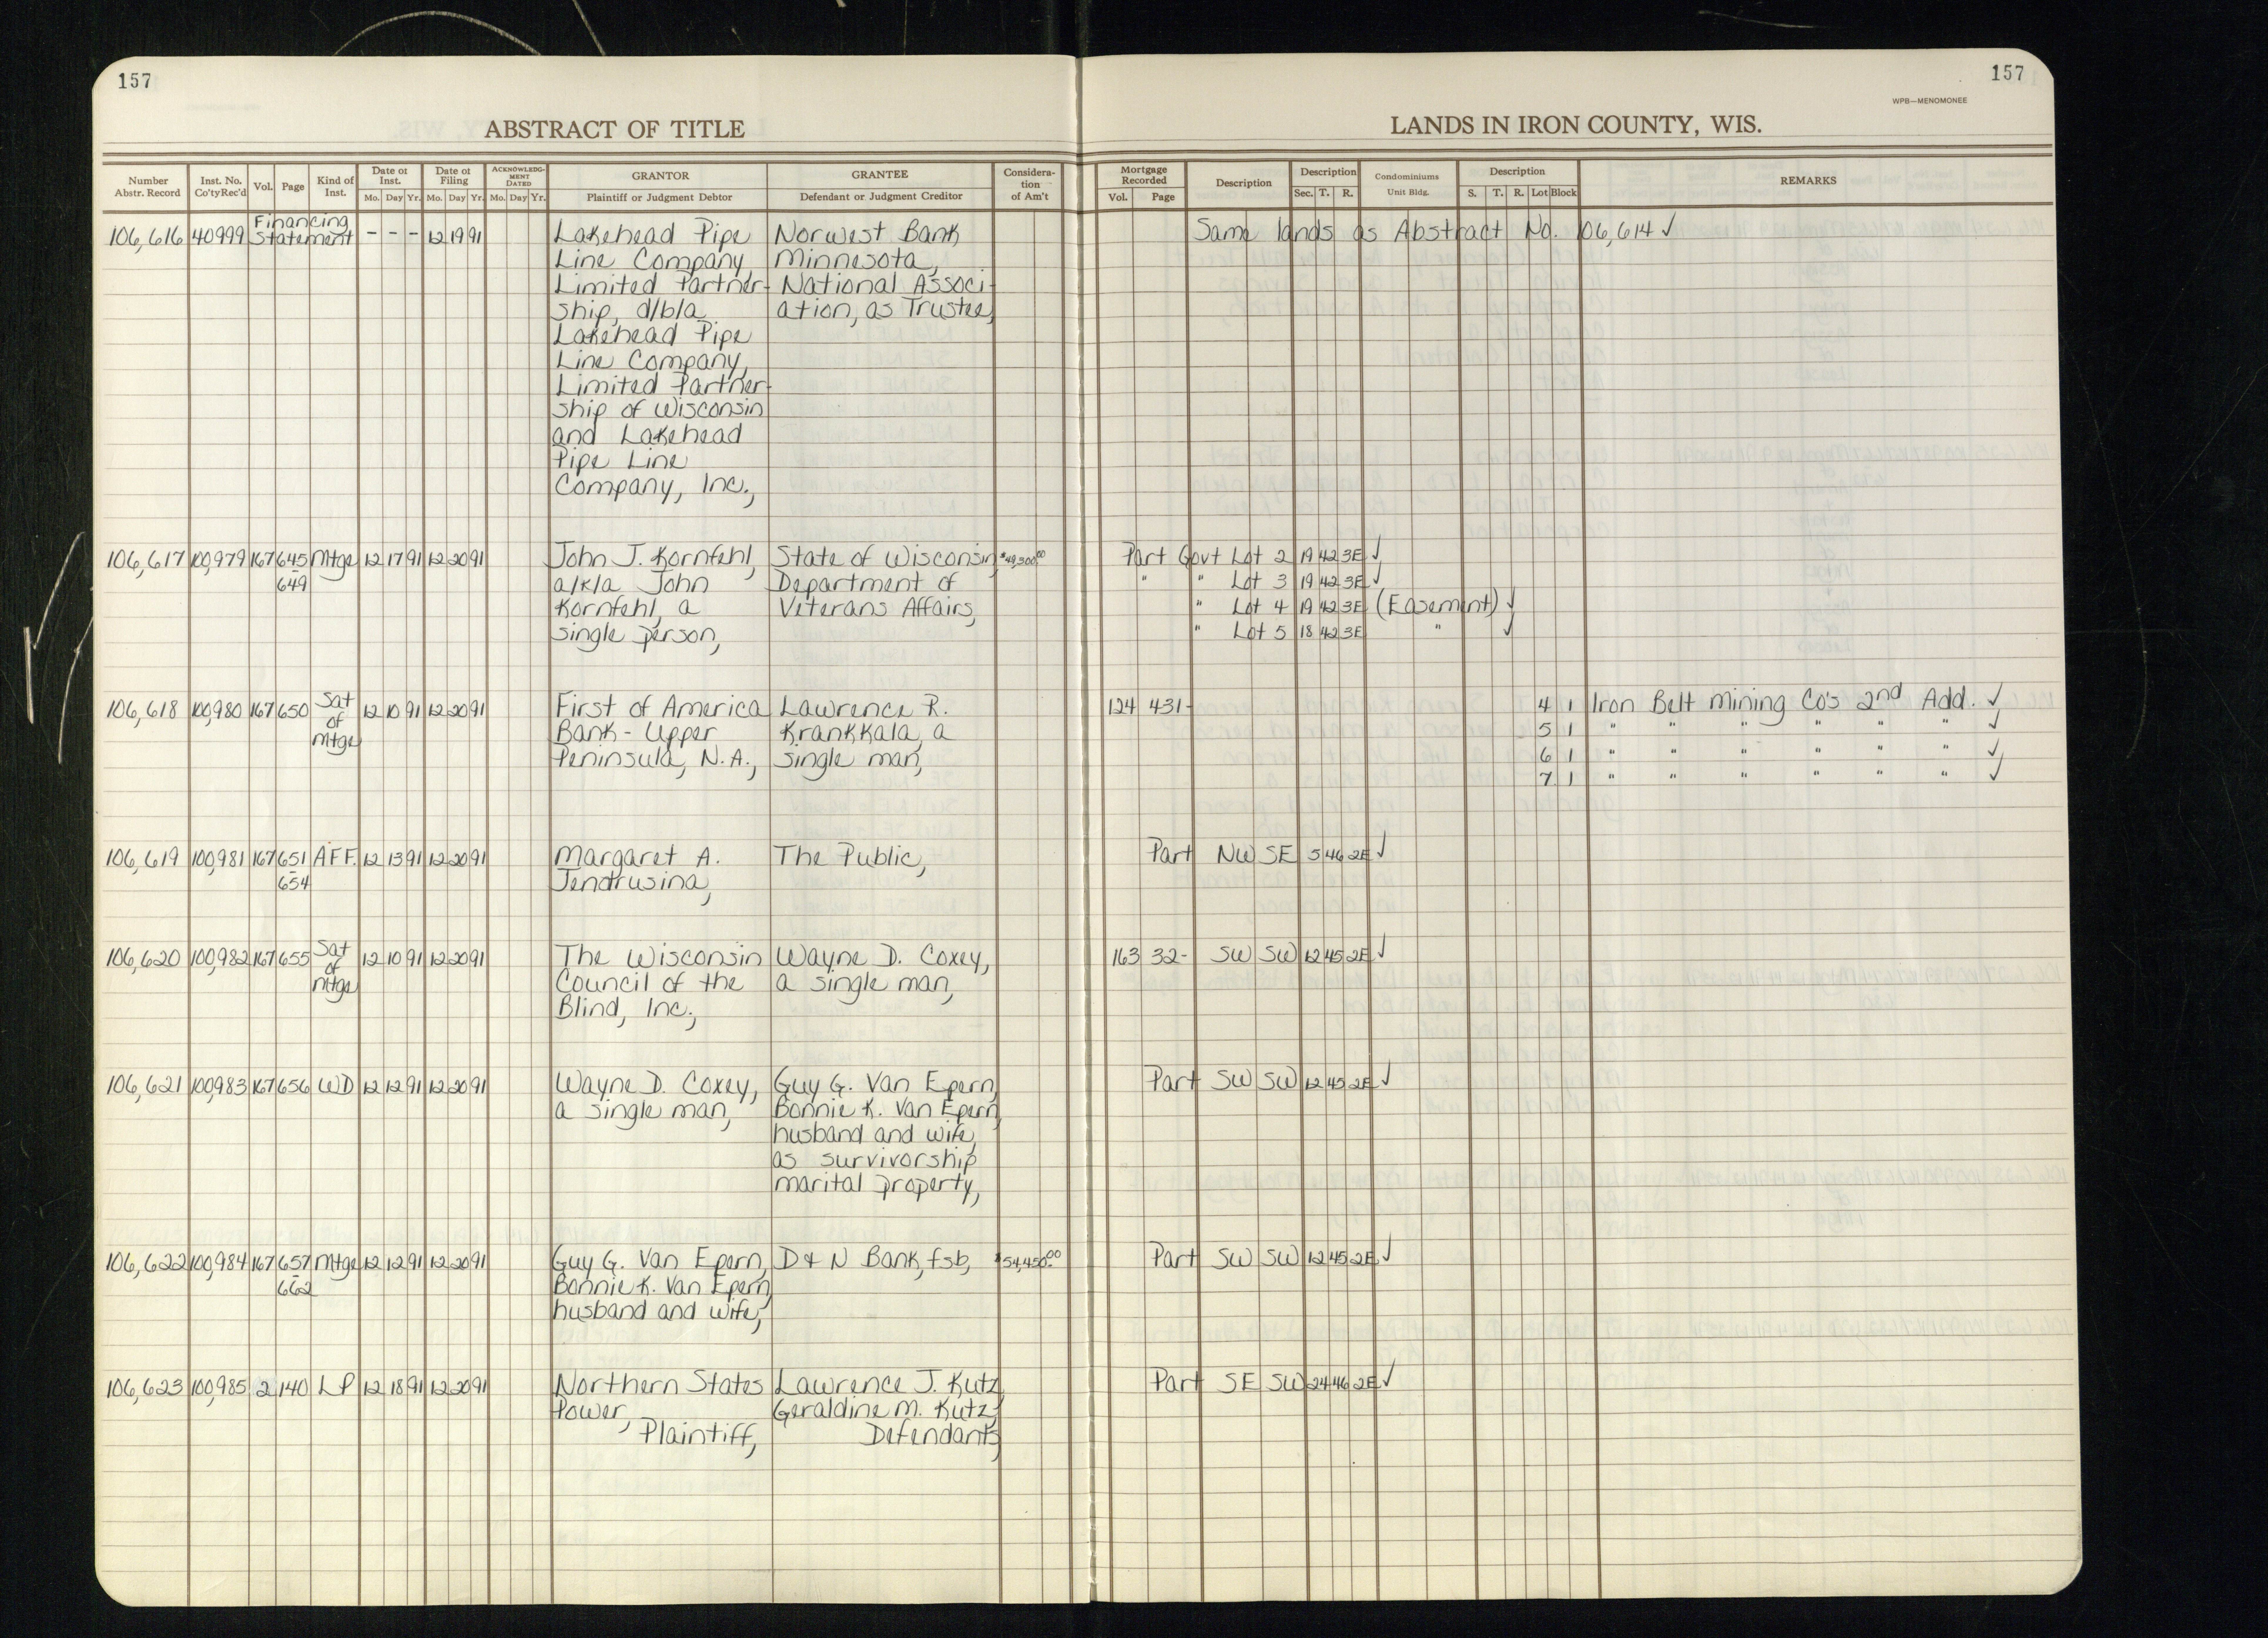 157
157
WPB—MENOMONEE
ABSTRACT OF TITLE
LANDS IN IRON COUNTY, WIS.
Number Abstr. Record | Inst. No. Co'ty Rec'd | Vol. | Page | Kind of Inst. | Date of Inst. Mo. Day Yr. | Date of Filing Mo. Day Yr. | ACKNOWLEDGMENT DATED Mo. Day Yr. | GRANTOR Plaintiff or Judgment Debtor | GRANTEE Defendant or Judgment Creditor | Consideration of Am't | Mortgage Recorded Vol. Page | Description | Description Sec. T. R. | Condominiums Unit Bldg. | Description S. T. R. Lot Block | REMARKS
106,616 40999 Financing Statement - - - 12 19 91 Lakehead Pipe Norwest Bank Same lands as Abstract No. 106,614 ✓
Line Company Minnesota,
Limited Partner- National Associ-
ship, d/b/a ation, as Trustee,
Lakehead Pipe
Line Company,
Limited Partner-
ship of Wisconsin
and Lakehead
Pipe Line
Company, Inc.,
106,617 100,979 167 645 Mtge 12 17 91 12 20 91 John J. Kornfehl, State of Wisconsin $49,300.00 Part Govt Lot 2 19 42 3E ✓
- 649 a/k/a John Department of " " Lot 3 19 42 3E ✓
Kornfehl, a Veterans Affairs, " Lot 4 19 42 3E (Easement) ✓
single person, " Lot 5 18 42 3E " ✓
106,618 100,980 167 650 Sat 12 10 91 12 20 91 First of America Lawrence R. 124 431- 4 1 Iron Belt Mining Co's 2nd Add. ✓
of Bank - Upper Krankkala, a 5 1 " " " " " " ✓
Mtge Peninsula, N.A., single man, 6 1 " " " " " " ✓
7 1 " " " " " " ✓
106,619 100,981 167 651 AFF. 12 13 91 12 20 91 Margaret A. The Public, Part NW SE 5 46 2E ✓
- 654 Jendrusina,
106,620 100,982 167 655 Sat 12 10 91 12 20 91 The Wisconsin Wayne D. Coxey, 163 32- SW SW 12 45 2E ✓
of Council of the a single man,
Mtge Blind, Inc.,
106,621 100,983 167 656 WD 12 12 91 12 20 91 Wayne D. Coxey, Guy G. Van Epern, Part SW SW 12 45 2E ✓
a single man, Bonnie K. Van Epern,
husband and wife,
as survivorship
marital property,
106,622 100,984 167 657 Mtge 12 12 91 12 20 91 Guy G. Van Epern, D & N Bank, fsb, $54,450.00 Part SW SW 12 45 2E ✓
- 662 Bonnie K. Van Epern,
husband and wife,
106,623 100,985 2 140 LP 12 18 91 12 20 91 Northern States Lawrence J. Kutz, Part SE SW 24 46 2E ✓
Power, Geraldine M. Kutz,
Plaintiff, Defendants,